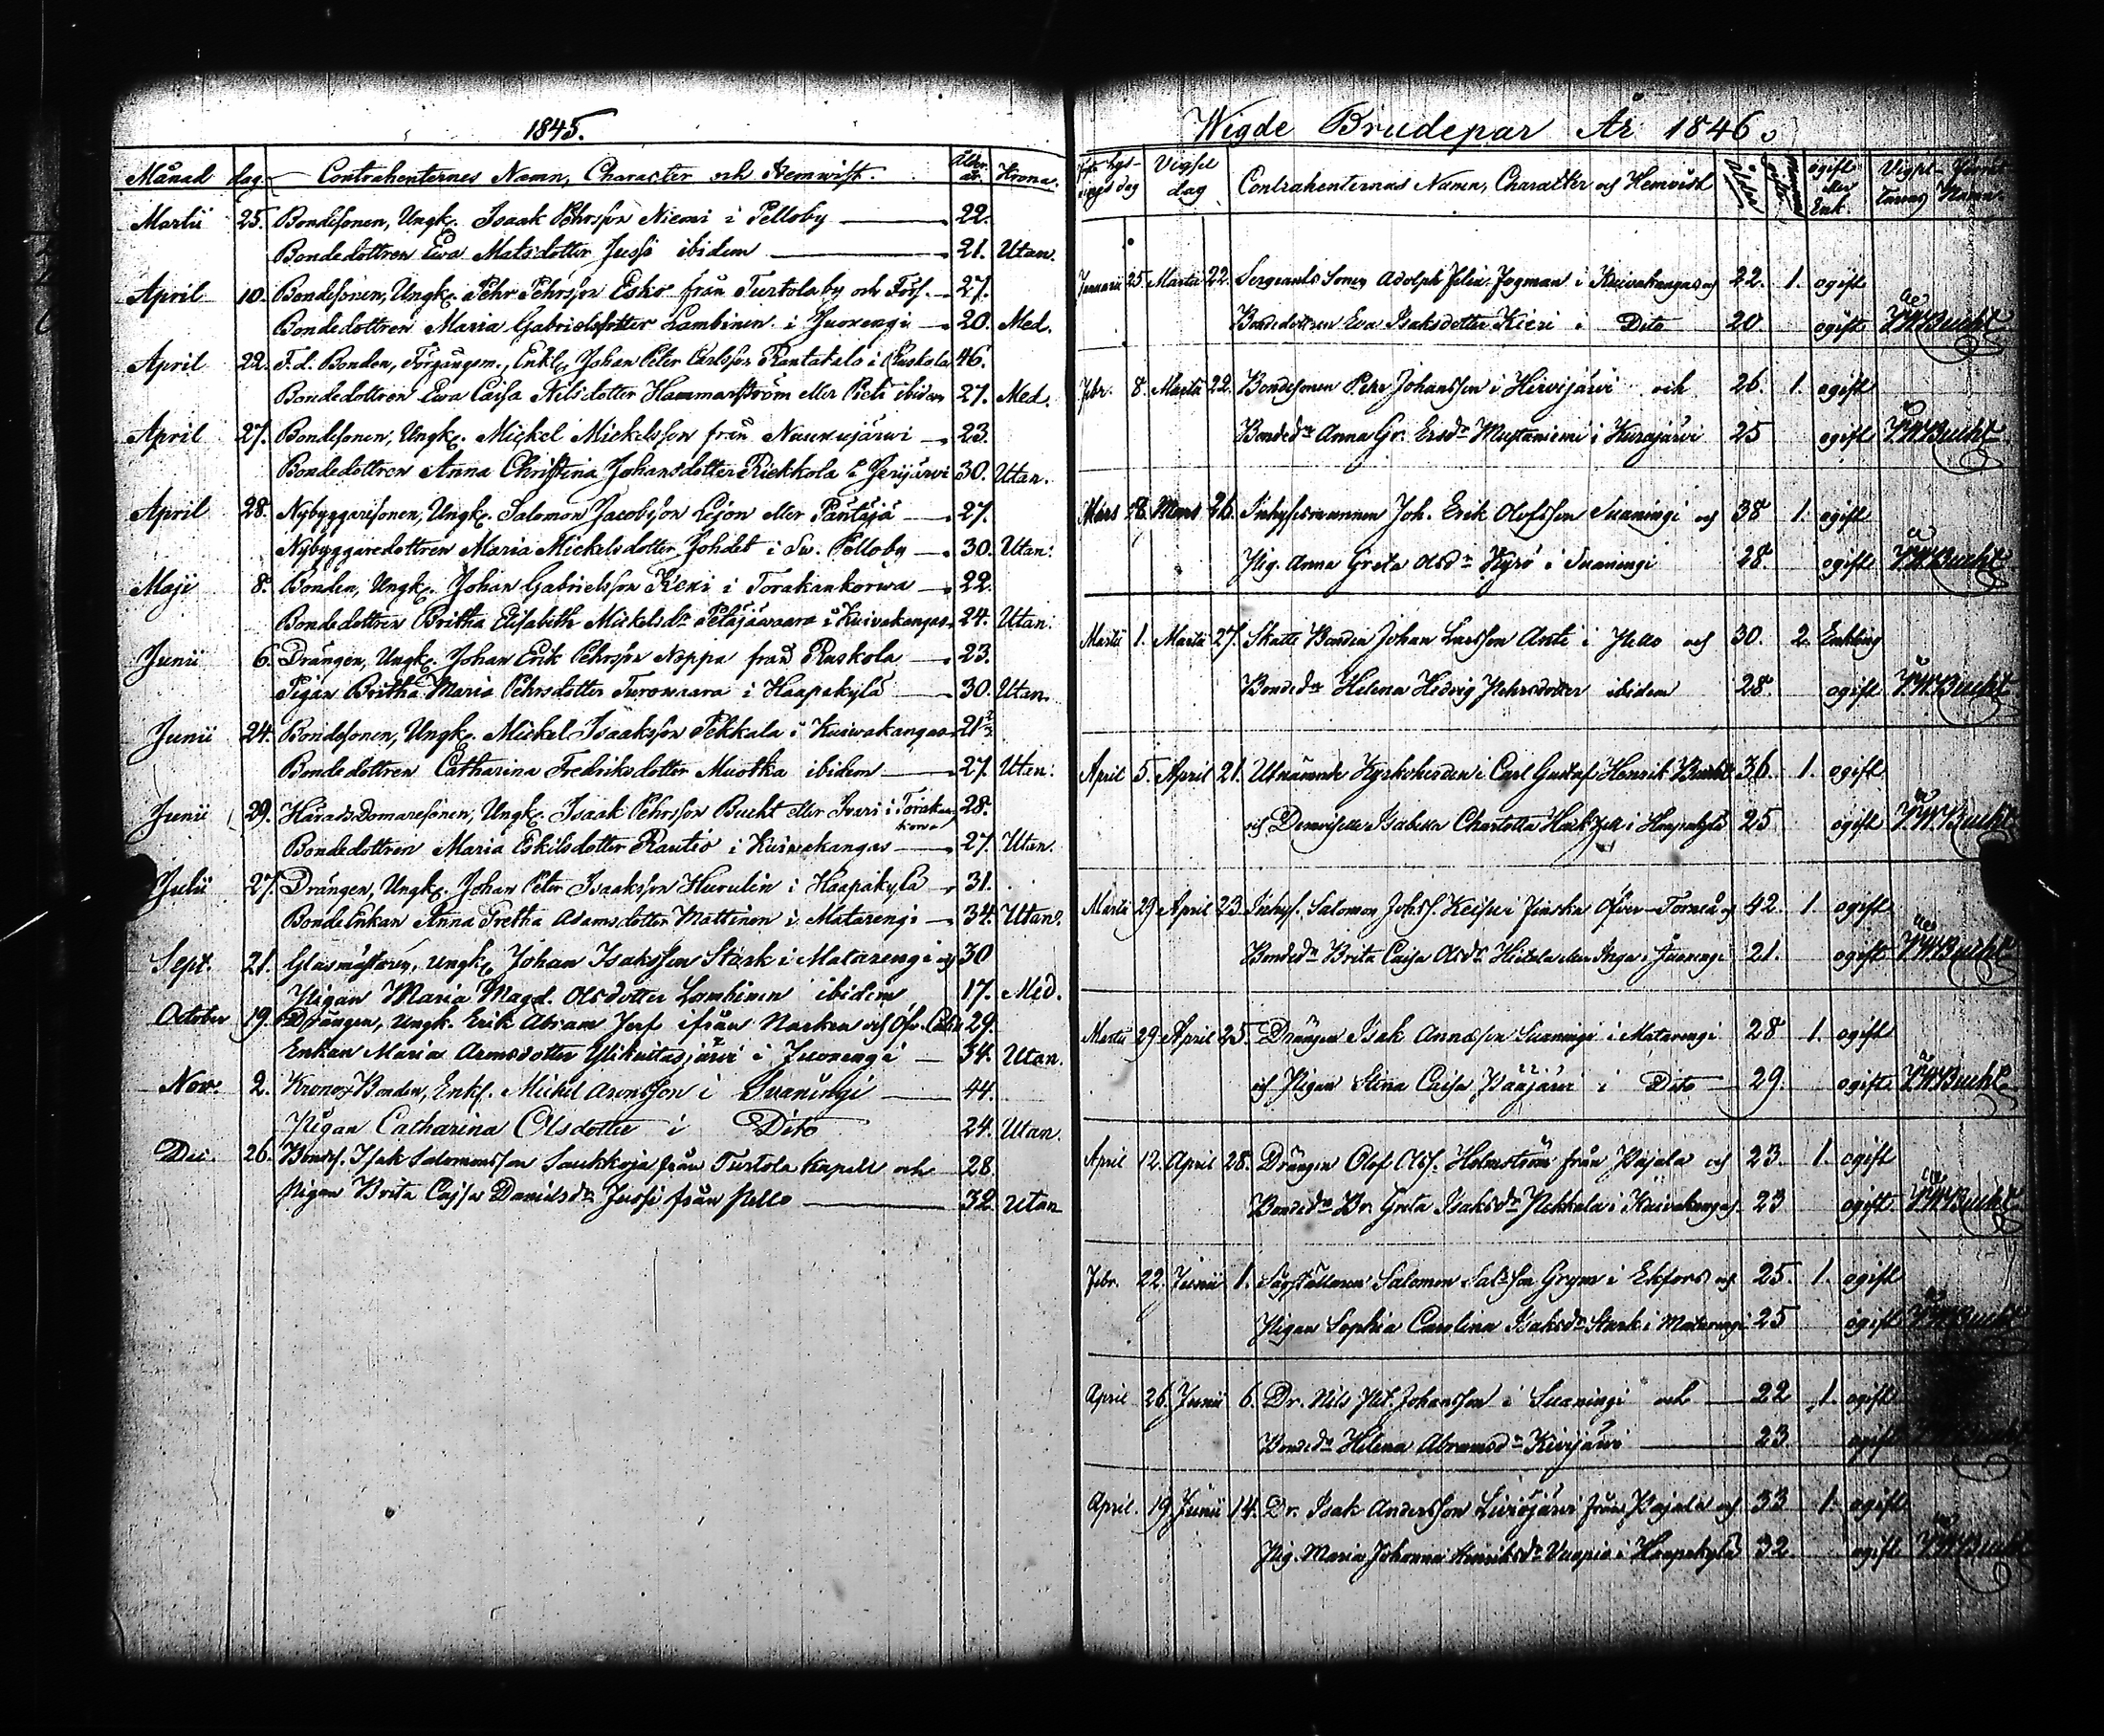 1845.
Månad dag. Contrahenternes Namn, Character och Hemwist. Ålder år. Krona.
Martii 25. Bondesonen, Ungk. Isaak Pehrsson Niemi i Pelloby 22.
Bondedottren Ewa Matsdotter Jussi ibidem 21. Utan.
April 10. Bondesonen, Ungk. Pehr Pehrsson Esko från Turtolaby och Förs. 27.
Bondedottren Maria Gabrielsdotter Lambinen i Juoxengi 20. Med.
April 22. F.d. Bonden, Förgångsm., Enkl. Johan Peter Carlsson Rantatalo i Ruskola 46.
Bondedottren Ewa Caisa Nilsdotter Hammarström eller Pieti ibidem 27. Med.
April 27. Bondesonen, Ungk. Mickel Mickelsson från Nuuxujärwi 23.
Bondedottren Anna Christina Johansdotter Riekkola i Jerijärwi 30. Utan.
April 28. Nybyggaresonen, Ungk. Salomon Jacobsson Lejon eller Pantsjä 27.
Nybyggaredottren Maria Mickelsdotter Johdet i Sv. Pelloby 30. Utan.
Maji 8. Bonden, Ungk. Johan Gabrielsson Kexi i Torakankorwa 22.
Bondedottren Britha Elisabeth Mickelsdr Petäjäwaara i Kuivakangas 24. Utan.
Junii 6. Drängen, Ungk. Johan Erik Pehrsson Noppa från Ruskola 23.
Pigan Britha Maria Pehrsdotter Turowaara i Haapakylä 30. Utan.
Junii 24. Bondesonen, Ungk. Mickel Isaaksson Pekkala i Kuiwakangas 21
Bondedottren Catharina Fredriksdotter Muotka ibidem 27. Utan.
Junii 29. HäradsDomaresonen, Ungk. Isaak Pehrsson Bucht eller Ivari i Torakankorva 28.
Bondedottren Maria Eskilsdotter Rautio i Kuiwakangas 27. Utan.
Julii 27. Drängen, Ungk. Johan Peter Isaaksson Hurulin i Haapakylä 31.
BondeEnkan Anna Gretha Adamsdotter Mattinen i Matarengi 34. Utan.
Sept. 21. Glasmästaren, ungk. Johan Isaksson Stark i Matarengi och 30
Pigan Maria Magd. Olsdotter Lambinen ibidem 17. Med.
October 19. Drängen, Ungk. Erik Abram Josf ifrån Narken och Öfv. Calix 29.
Enkan Maria Aronsdotter Ylikuitasjärvi i Juoxengi 34. Utan.
Nov. 2. KronoBonden, Enkl. Mickel Aronsson i Svanüngi 44.
Pigan Catharina Olsdotter i Dito 24. Utan.
Dec. 26. Bondes. Isak Salomonsson Saukkoja från Turtola kapell och 28.
Pigan Brita Cajsa Danielsdr Jussi från Pello 32. Utan
Wigde Brudepar År 1846.
Lysningsdag Vigsel dag Contrahenternas Namn, Character och Hemvist Ålder ogift eller Enk. Vigsel Namn
Januarii 25. Martii 22. Sergeants Sonen Adolph Felix Fogman i Kuivakangas och 22. 1. ogift
Bondedottren Eva Isaksdotter Kieri i Dito 20 ogift Bucht
Febr. 8. Martii 22. Bondesonen Pehr Johansson i Hirvijärvi och 26. 1. ogift
Bondedr Anna Gr. Ersdr Mustaniemi i Kurajärvi 25 ogift Bucht
Mars 8. Mars 26. Inhysesmannen Joh. Erik Olofsson Svaningi och 38 1. ogift
Pig. Anna Greta Olsdr Kyrö i Svaningi 28. ogift Bucht
Martii 1. Martii 27. Skatte Bonden Johan Larsson Anti i Pello och 30. 2. Enkling
Bondedr Helena Hedvig Pehrsdotter ibidem 28. ogift Bucht
April 5. April 21. Utnämnde Kyrkoherden Carl Gustaf Henrik Bucht 36. 1. ogift
och Demoiselle Isabella Charlotta Hackzell i Haapakylä 25 ogift Bucht
Martii 29 April 23. Inhys. Salomon Johss. Keisu i Finska Öfver-Torneå och 42. 1. ogift
Bondedr Brita Caisa Olsdr Hietala i Juoxengi 21. ogift Bucht
Martii 29 April 25. Drängen Isak Annasson Svaningi i Matarengi 28 1. ogift
och Pigan Stina Caisa Pääjärvi i Dito 29. ogift Bucht
April 12. April 28. Drängen Olof Olss. Holmström från Pajala och 23. 1. ogift
Bondedr Br. Greta Isaksdr Pekkala i Kuivakangas 23 ogift Bucht
Febr. 22. Junii 1. Sågställaren Salomon Salsson Grym i Ekfors och 25. 1. ogift
Pigan Sophia Carolina Isaksdr Stark i Matarengi 25 ogift Bucht
April 26. Junii 6. Dr. Nils Pet. Johansson i Svaningi och 22 1. ogift
Bondedr Helena Abramsdr Kivijärvi 23 ogift
April 19 Junii 14. Dr. Isak Andersson Liviöjärvi från Pajala och 33 1. ogift
Pig. Maria Johanna Henriksdr Vuopio i Haapakylä 32. ogift Bucht